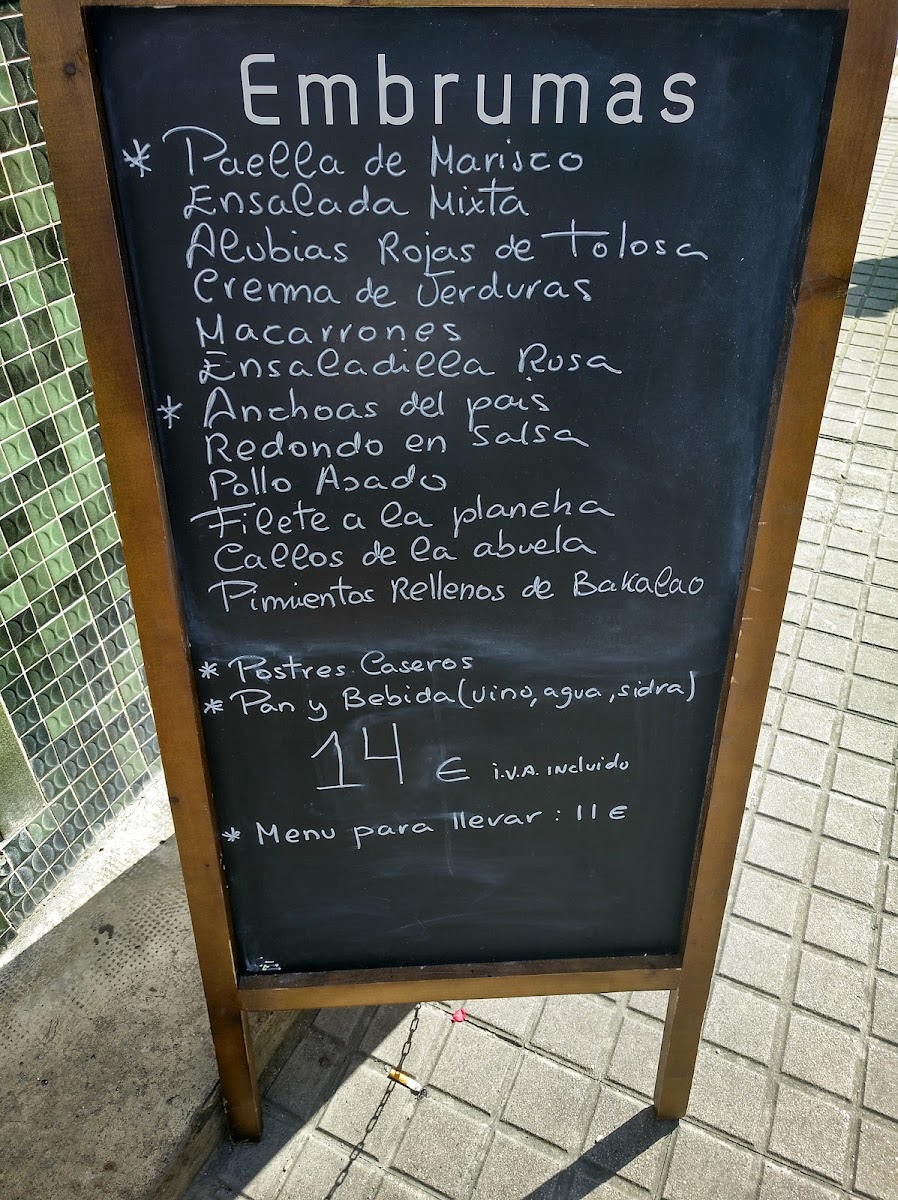 Embrumas
* Paella de Marisco
Ensalada Mixta
Alubias Rojas de Tolosa
Crema de Verduras
Macarrones
Ensaladilla Rusa
* Anchoas del pais
Redondo en salsa
Pollo Asado
Filete a la plancha
Callos de la abuela
Pimientos Rellenos de Bakalao
* Postres Caseros
* Pan y Bebida (vino, agua, sidra)
14 € i.V.A. incluido
* Menu para llevar : 11 €